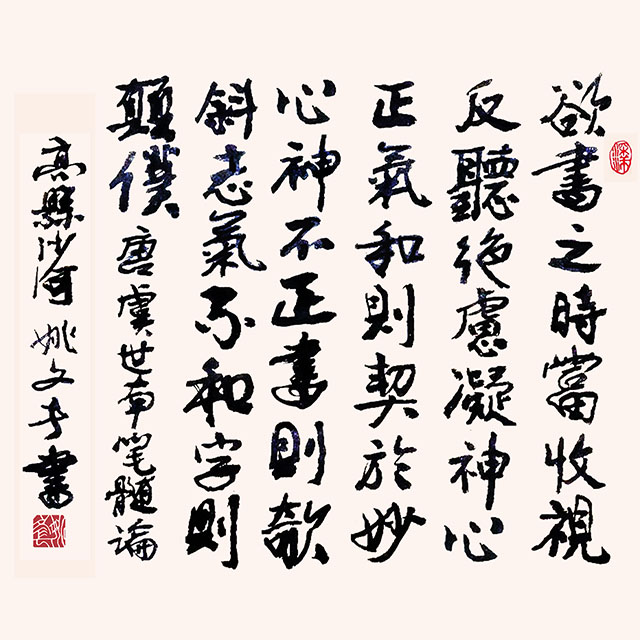 欲書之時當收視
反聽絕慮凝神心
正氣和則契於妙
心神不正書則欹
斜志氣不和字則
顛僕 唐虞世南笔髓論
高縣沙河 姚文 書